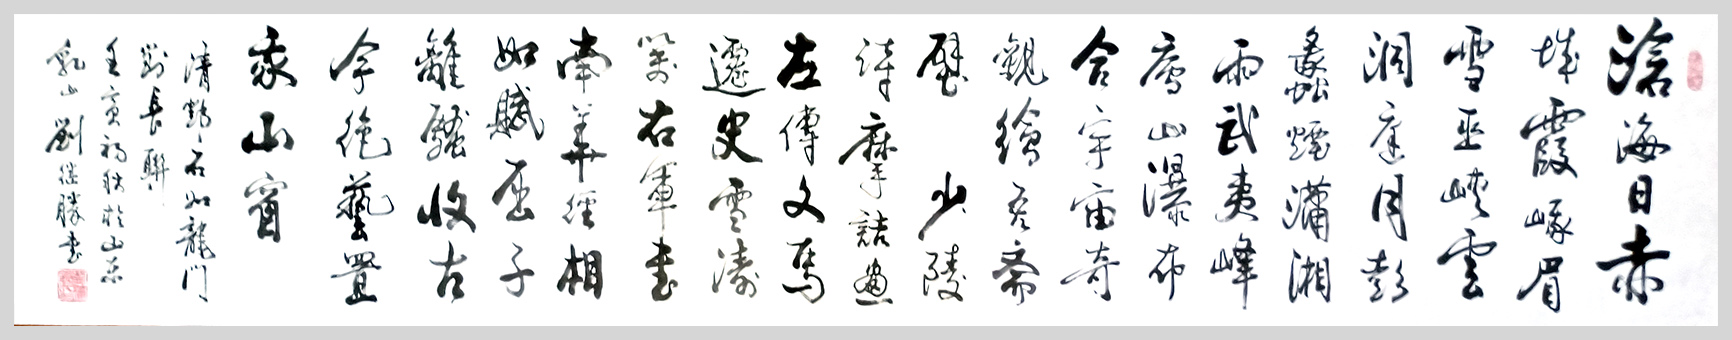 滄海日赤
城霞峨眉
雪巫峽雲
洞庭月彭
蠡煙瀟湘
雨武夷峰
廬山瀑布
合宇宙奇
觀繪吾齋
壁 少陵
詩摩詰畫
左傳文馬
遷史雪濤
箋右軍書
南華經相
如賦屈子
離騷收古
今絕藝置
我山窗
清鄧石如龍門
對長聯
壬寅初秋於山東
乳山劉繼勝書